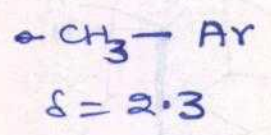 - CH₃ — Ar
δ = 2.3